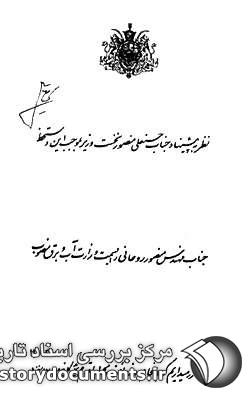 نظر به پیشنهاد جناب حسنعلی منصور نخست وزیر بموجب این دستخط
جناب مهندس منصور روحانی را بسمت وزارت آب و برق منصوب
مرکز بررسی اسناد تاریخ
storydocuments